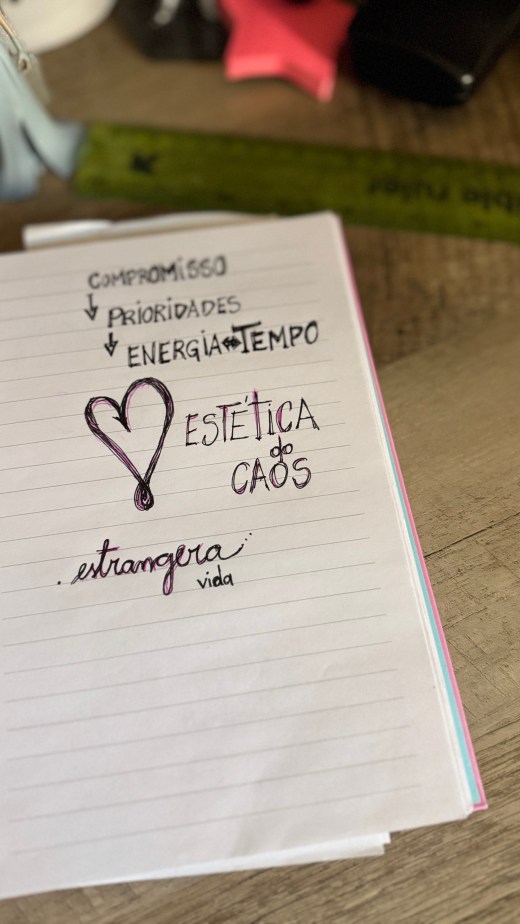 ible ruler
COMPROMISSO
↓ PRIORIDADES
↓ ENERGIA ↔ TEMPO
ESTÉTICA
do
CAOS
. estrangera
vida